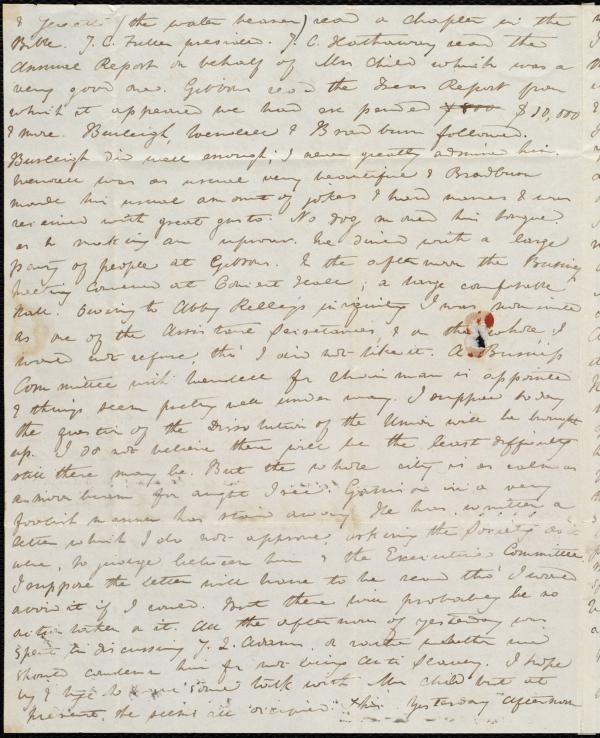 & (the water bearer) read a chapter in the
Bible. J. C. Fuller presided. J. C. Hathaway read the
Annual Report on behalf of Mrs Child which was a
very good one. Gibbons read the Treas Report from
which it appeared we had expended $10,000
& more. Burleigh, Wendell & Bradburn followed.
Burleigh did well enough; I never greatly admire him.
Wendell was as usual very beautiful & Bradburn
made his usual amount of jokes & hard names & was
received with great gusto. No dog moved his tongue
as to making an uproar. We dined with a large
party of people at Gibbons. In the afternoon the Business
meeting convened at Concert Hall; a large comfortable
Hall. Owing to Abby Kelley's iniquity I was nominated
as one of the Assistant Secretaries, & on the whole I
would not refuse, tho' I did not like it. A Business
Committee with Wendell for Chairman is appointed
& things seem pretty well under way. I suppose today
the question of the Dissolution of the Union will be brought
up. I do not believe there will be the least difficulty
still there may be. But the whole city is as calm as
a summer's for aught I see. Garrison in a very
foolish manner has staid away. He has written a
letter which I do not approve, asking the Society as it
were, to judge between him & the Executive Committee.
I suppose the letter will have to be read tho' I would
avoid it if I could. But there will probably be no
action taken on it. All the afternoon of yesterday was
spent in discussing J. Q. Adams, or rather whether we
should condemn him for not being Anti Slavery. I hope
by & bye to have some talk with Mrs Child but at
present, she seems all occupied. Yesterday afternoon